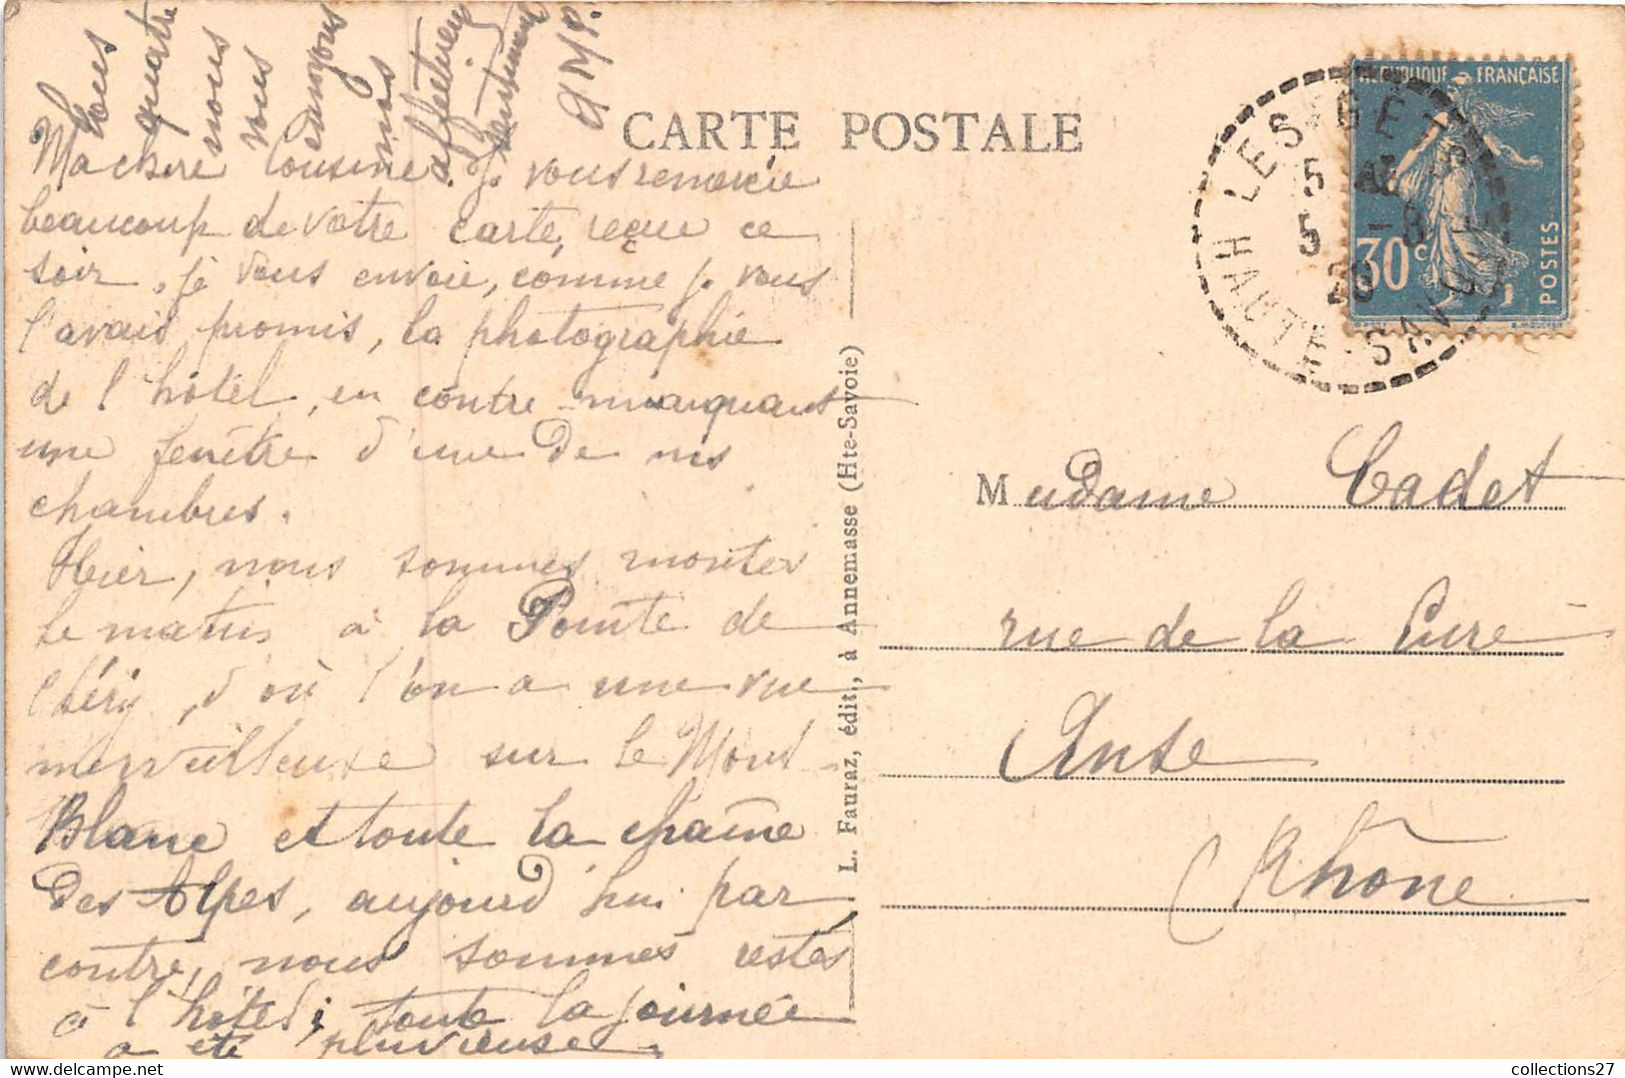 CARTE POSTALE
Ma chère Cousine. Je vous remercie
beaucoup de votre carte, reçue ce
soir. je vous envoie, comme je vous
l'avais promis, la photographie
de l'hôtel, en contre marquant
une fenêtre d'une de nos
chambres.
Hier, nous sommes montés
le matin à la Pointe de
Chéry, d'où l'on a une vue
merveilleuse sur le Mont
Blanc et toute la chaîne
des Alpes, aujourd'hui par
contre, nous sommes restés
à l'hôtel; toute la journée
a été pluvieuse.
Tous
quatre
nous
vous
envoyons
nos
affectueux
L. Fauraz, édit., à Annemasse (Hte-Savoie)
REPUBLIQUE FRANÇAISE
30c
POSTES
LES GETS
5 -8
HTE SAVOIE
Madame Cadet
rue de la Cure
Anse
(Rhône
collections27